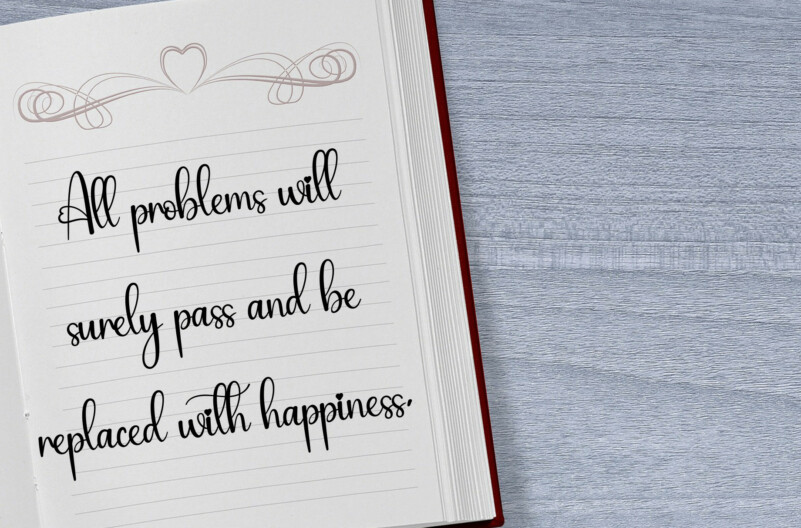 All problems will
surely pass and be
replaced with happiness.